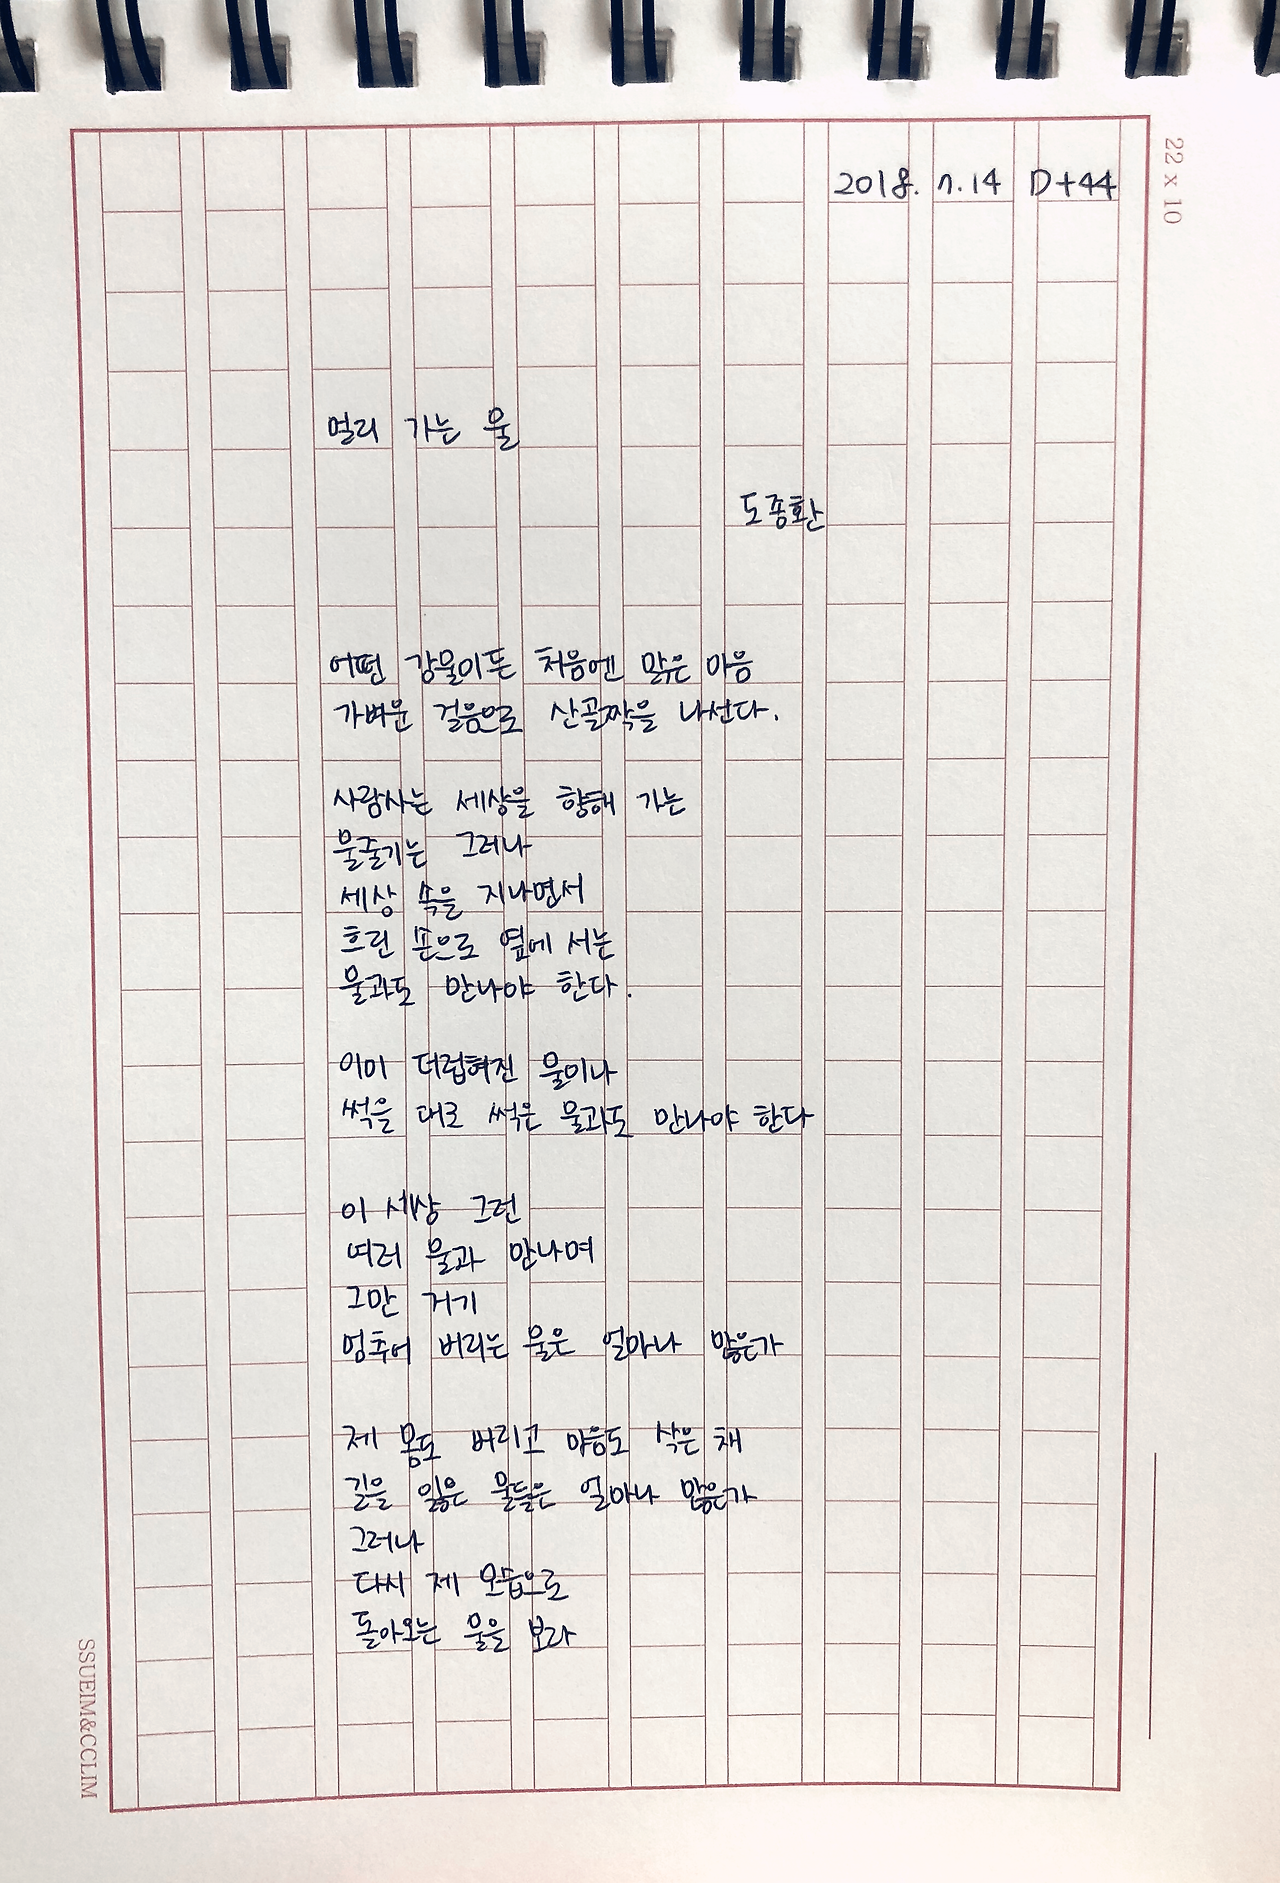 22 x 10
2018. 7. 14 D+44
멀리 가는 물
도종환
어떤 강물이든 처음엔 맑은 마음
가벼운 걸음으로 산골짝을 나선다.
사람사는 세상을 향해 가는
물줄기는 그러나
세상 속을 지나면서
흐린 손으로 옆에 서는
물과도 만나야 한다.
이미 더럽혀진 물이나
썩을 대로 썩은 물과도 만나야 한다
이 세상 그런
여러 물과 만나며
그만 거기
멈추어 버리는 물은 얼마나 많은가
제 몸도 버리고 마음도 삭은 채
길을 잃은 물들은 얼마나 많은가
그러나
다시 제 모습으로
돌아오는 물을 보라
SSUEIM&CCLIM